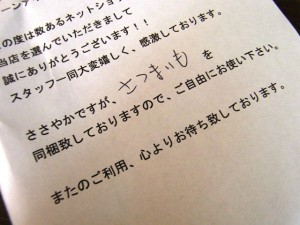 の度は数あるネットショ
当店を選んでいただきまして
誠にありがとうございます！！
スタッフ一同大変嬉しく、感謝しております。
ささやかですが、さつまいも を
同梱致しておりますので、ご自由にお使い下さい。
またのご利用、心よりお待ち致しております。